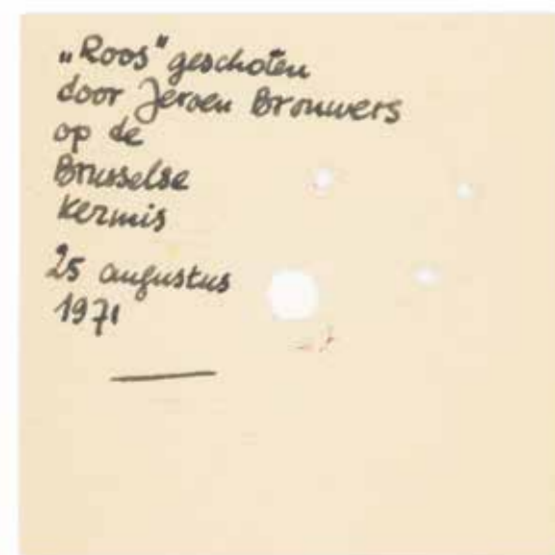 „Roos" geschoten
door Jeroen Brouwers
op de
Brusselse
kermis
25 augustus
1971